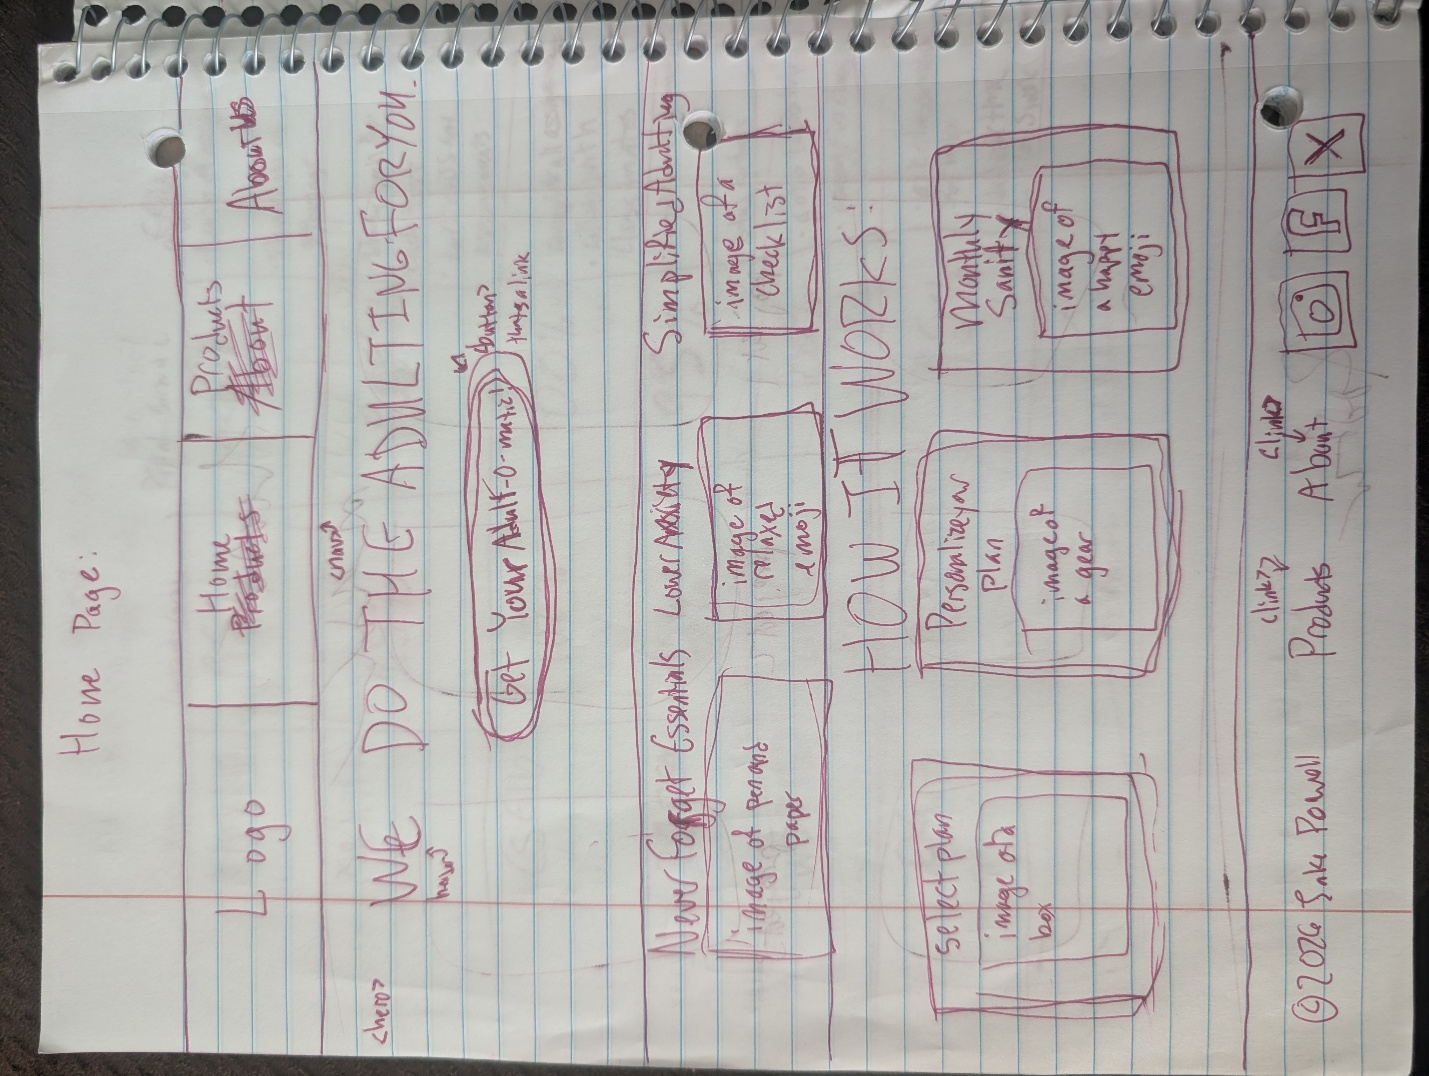 Home Page:
Logo
Home
Products
Products
About
About Us
<nav>
<hero>
WE DO THE ADULTING FOR YOU.
Get Your Adult-o-matic!
<button>
thats a link
Never Forget Essentials
image of pen and
paper
Lower Anxiety
image of
relaxed
emoji
Simplified Adulting
image of a
checklist
HOW IT WORKS:
Select plan
image of a
box
Personalize your
plan
image of
a gear
Monthly
Sanity
image of
a happy
emoji
©2026 Jake Powell
<link>
Products
<link>
About
f
X